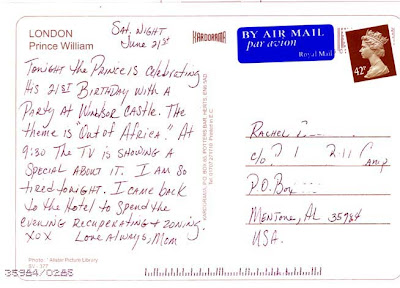 LONDON
Prince William
Sat. Night
June 21st
KARDORAMA
BY AIR MAIL
par avion
Royal Mail
42p
Tonight the Prince is celebrating
His 21st Birthday with a
Party at Windsor Castle. The
theme is "Out of Africa." At
9:30 the TV is showing a
special about it. I am so
tired tonight. I came back
to the Hotel to spend the
evening recuperating & zoning.
XOX Love Always, Mom
KARDORAMA, P.O. BOX 85, POTTERS BAR, HERTS. EN6 5AD
Rachel
c/o Camp
P.O. Box
Mentone, AL 35984
USA.
Photo: Picture Library
35984/0285